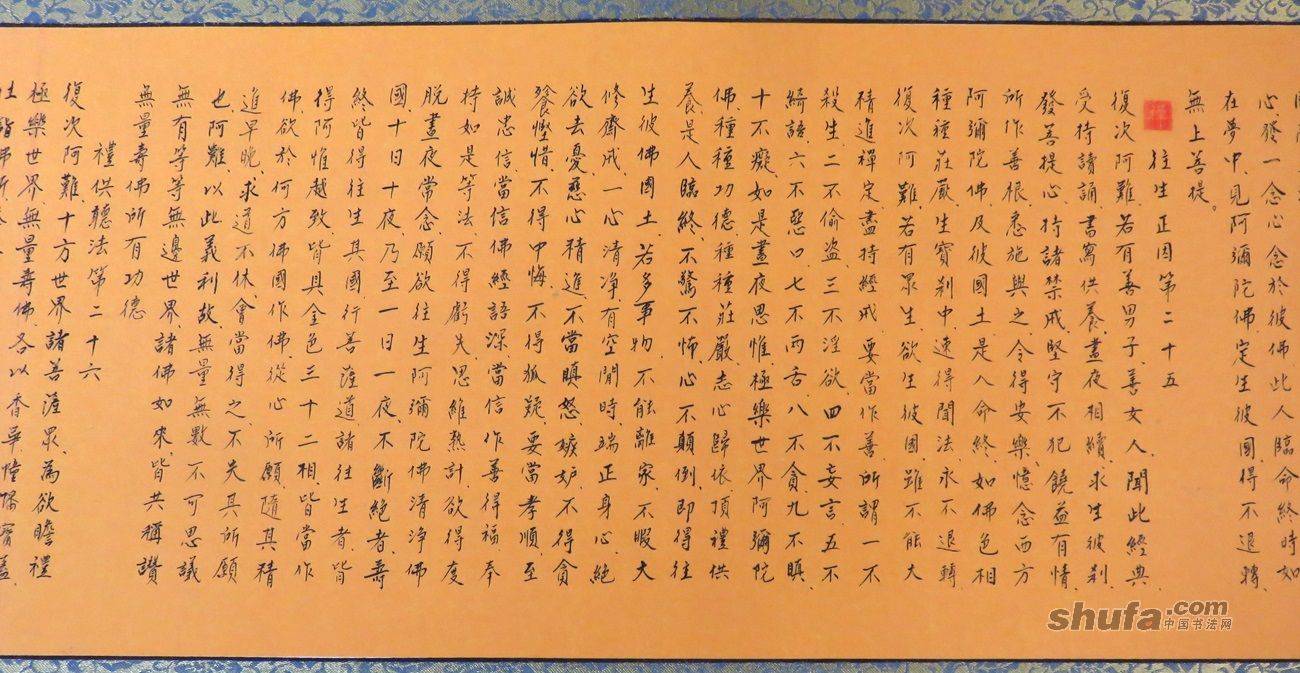 心發一念心念於彼佛此人臨命終時如
在夢中見阿彌陀佛定生彼國得不退轉
無上菩提。
往生正因第二十五
復次阿難、若有善男子、善女人聞此經典
受持讀誦、書寫供養、晝夜相續、求生彼剎、
發菩提心、持諸禁戒、堅守不犯、饒益有情、
所作善根悉施與之、令得安樂、憶念西方
阿彌陀佛、及彼國土、是人命終、如佛色相
種種莊嚴、生寶剎中、速得聞法、永不退轉
復次阿難若有眾生、欲生彼國、雖不能大
精進禪定、盡持經戒、要當作善、所謂一不
殺生、二不偷盜、三不淫欲、四不妄言、五不
綺語、六不惡口、七不兩舌、八不貪、九不瞋、
十不癡、如是晝夜思惟、極樂世界阿彌陀
佛、種種功德、種種莊嚴、志心歸依、頂禮供
養、是人臨終、不驚不怖、心不顛倒、即得往
生彼佛國土、若多事物、不能離家、不暇大
修齋戒、一心清淨、有空閒時、端正身心、絕
欲去憂、慈心精進、不當瞋怒、嫉妒、不得貪
餮慳惜、不得中悔、不得狐疑、要當孝順、至
誠忠信、當信佛經語深、當信作善得福、奉
持如是等法、不得虧失、思維熟計、欲得度
脫、晝夜常念、願欲往生阿彌陀佛清淨佛
國、十日十夜、乃至一日一夜、不斷絕者、壽
終皆得往生其國、行菩薩道、諸往生者、皆
得阿惟越致、皆具金色三十二相、皆當作
佛、欲於何方佛國作佛、從心所願、隨其精
進早晚、求道不休、會當得之、不失其所願
也、阿難、以此義利故、無量無數不可思議
無有等等無邊世界、諸佛如來、皆共稱讚
無量壽佛所有功德
禮供聽法第二十六
復次阿難、十方世界諸菩薩眾、為欲瞻禮
極樂世界無量壽佛、各以香華幢幡寶蓋、
shufa.com
中国书法网